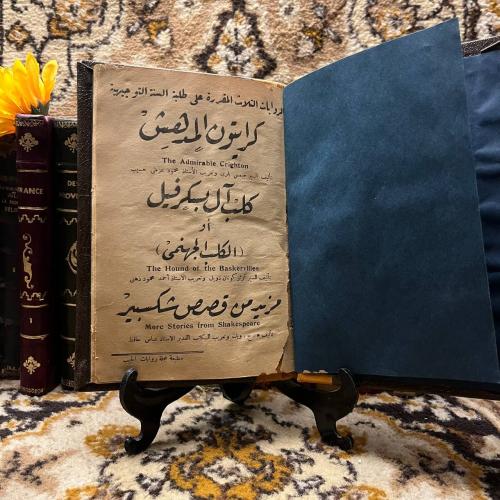 الروايات الثلاث المقررة على طلبة السنة التوجيهية
كرايتون المدهش
The Admirable Crighton
تأليف السير جيمس باري وتعريب الأستاذ محمود
كلب آل بسكرفيل
أو
(الكلب الجهنمى)
The Hound of the Baskervilles
تأليف السير كونان دويل وتعريب الاستاذ أحمد محمود
مزيد من قصص شكسبير
More Stories from Shakespeare
تأليف وتعريب الكاتب القدير الاستاذ عباس حافظ
مطبعة مجلة روايات الجيب
RANCE
I
DE
PROV